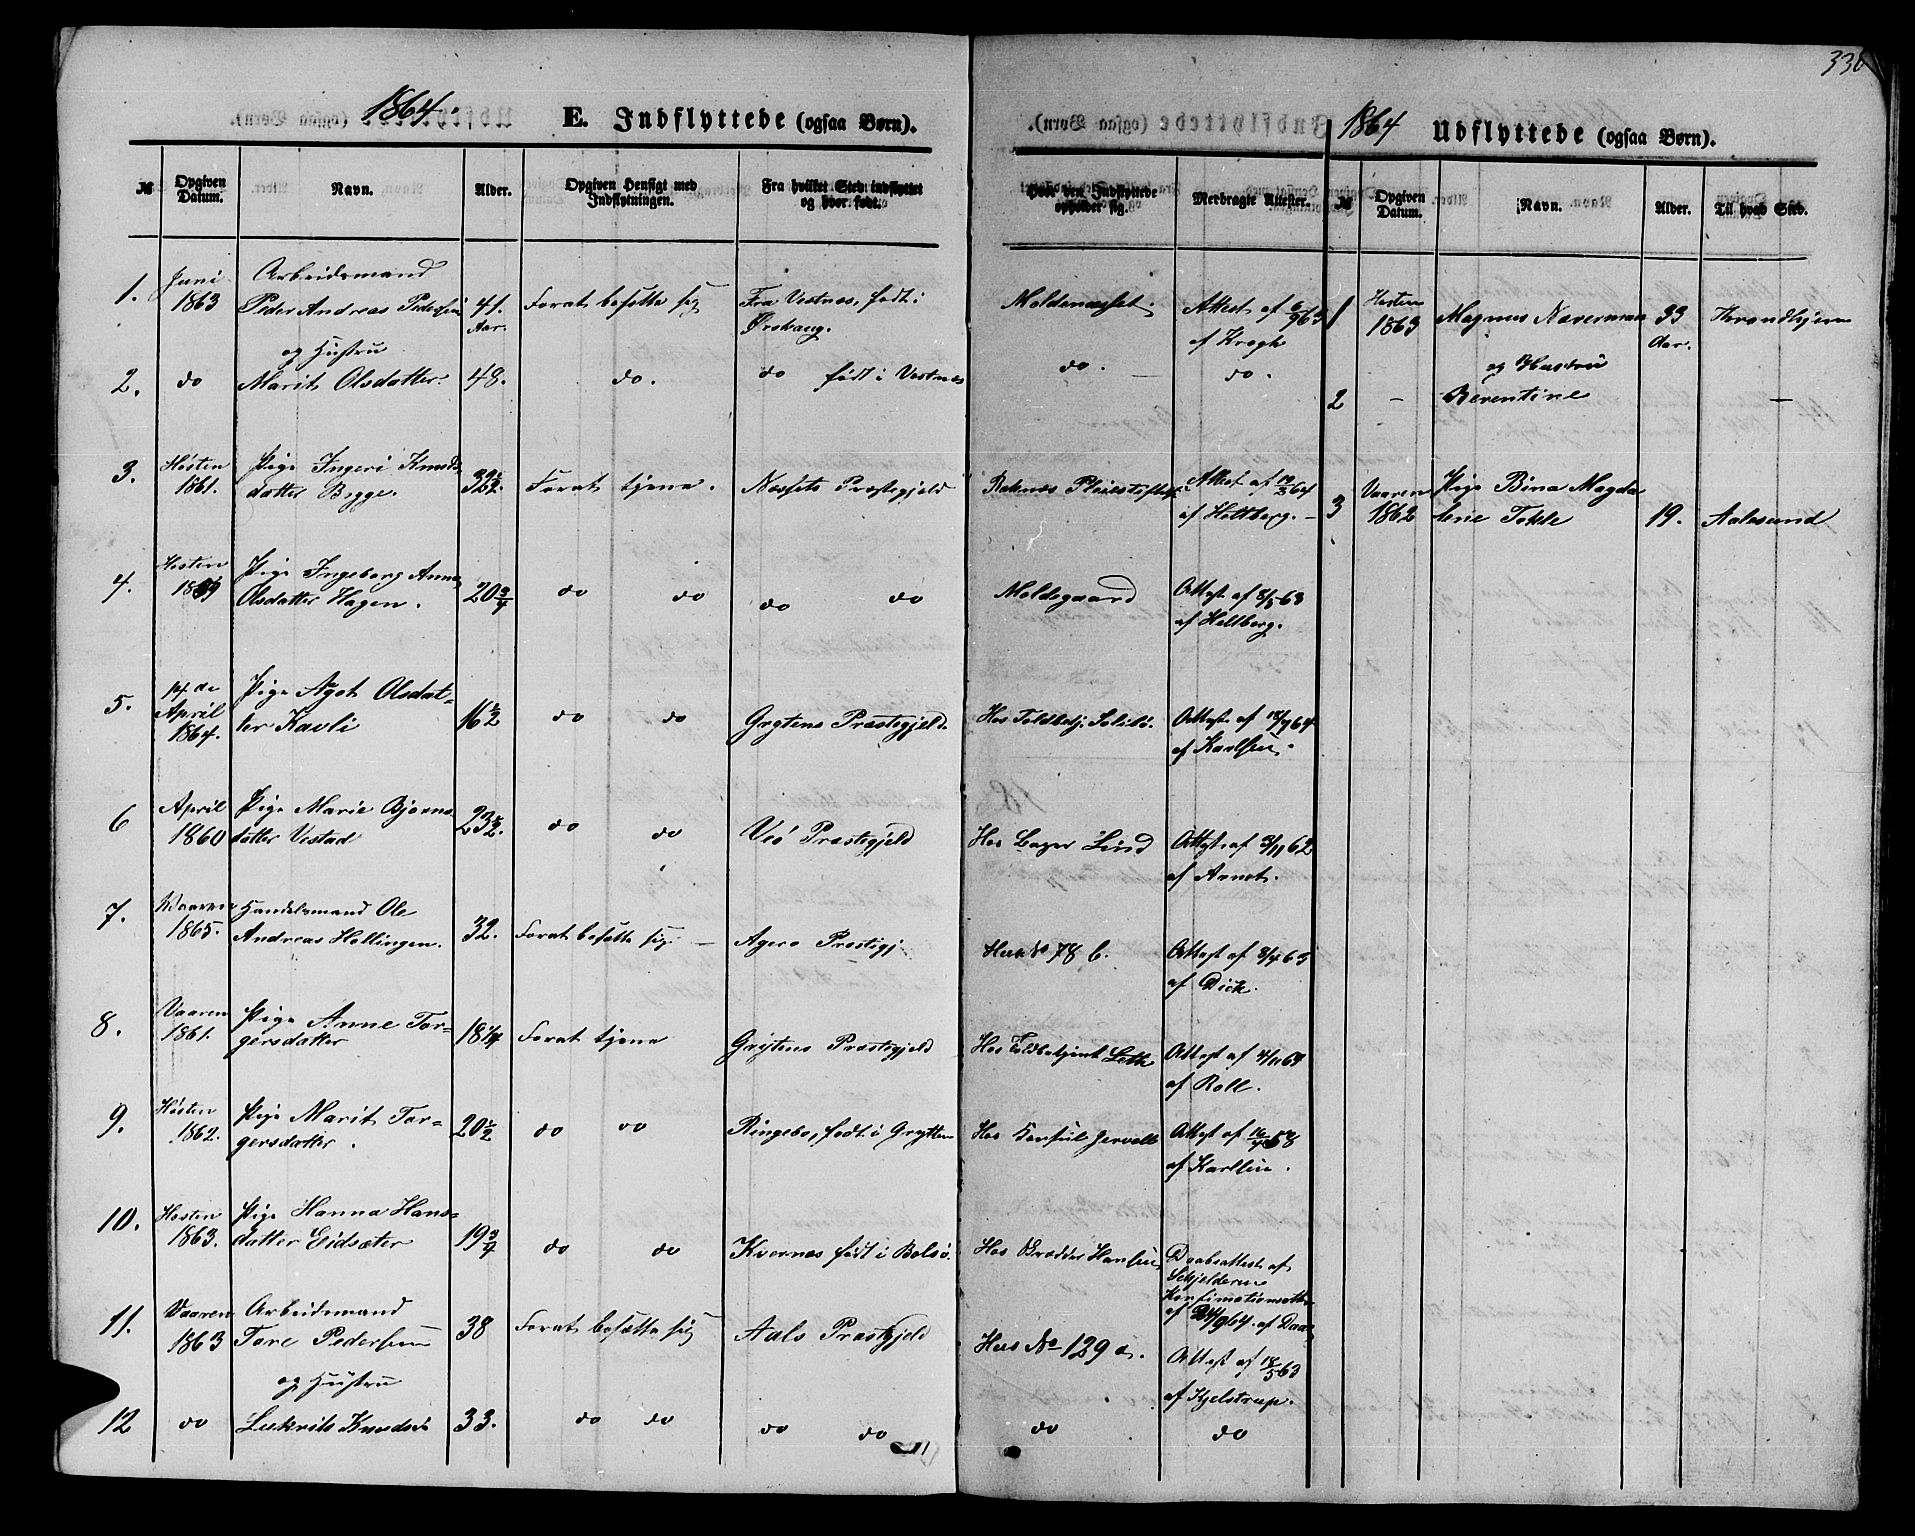 336
1864.
E. Indflyttede (ogsaa Børn).
№ | Opgiven Datum. | Navn. | Alder. | Opgiven Hensigt med Indflytningen. | Fra hvilket Sted indflyttet og hvor født. | Hvor den Indflyttede opholder sig. | Medbragte Attester.
1. | Juni 1863 | Arbeidsmand Peder Andreas Pedersen | 41. Aar. | Forat bosætte sig | Fra Vestnæs, født i Ørskaug. | Moldenæsset. | Attest af 6/9 63 af Krogh
2. | do | og Hustru Marit Olsdatter. | 48. | do. | do født i Vestnæs | do. | do.
3. | Høsten 1861. | Pige Ingeri Knuds datter Bygge. | 32½. | Forat tjene. | Næssets Præstegjeld | Reknæs Pleiestiftelse | Attest af 64 af Holtberg.
4. | Høsten 1859 | Pige Ingeborg Anna Olsdatter Hagen. | 20¾ | do do | do do | Moldegaard | Attest af 8/5 63 af Holtberg.
5. | 14de April 1864. | Pige Agot Olsdat- ter Kavli | 16½ | do do | Grytens Præstegjeld. | Hos Toldbetj. | Attest af 18/9 64 af Karlsen.
6 | April 1860 | Pige Marie Bjørns datter Vestad | 23½. | do do | Veø Præstegjeld | Hos Bager Lind | Attest af 3/11 62 af Arnet.
7. | Vaaren 1865. | Handelsmand Ole Andreas Hollingen. | 32. | Forat bosætte sig | Agerø Præstegj. | Huus No 78 b. | Attest af 8/4 65 af Dick.
8. | Vaaren 1861. | Pige Anne Tor= gersdatter | 18¼ | Forat tjene | Grytens Præstegjeld | Hos Toldbetjent Leth | Attest af 4/11 64 af Roll.
9. | Høsten 1862. | Pige Marit Tor= gersdatter. | 20½ | do do | Ringebo, født i Grytten | Hos Konsul Gørvell | Attest af 58 af Karlsen.
10. | Høsten 1863. | Pige Hanna Hans= datter Eidsæter | 19¾ | do do | Kvernæs født i Bolsø. | Hos Brødder Hansen | Daabsattest af Schjelderup Konfirmationsatt. af 24/9 64. af Daae
11. | Vaaren 1863 | Arbeidsmand Tore Pedersen | 38 | Forat bosætte sig | Aals Præstegjeld | Huus No 129 a. | Attest af 18/5 63 af Kjelstrup.
12 | do | og Hustru Lukrits Knudsd. | 33. | do do | do do | do | do
1864
Udflyttede (ogsaa Børn).
№ | Opgiven Datum. | Navn. | Alder. | Til hvad Sted.
1 | Høsten 1863 | Magnus Naverman | 33 Aar. | Throndhjem
2 | — | og Hustru Berentine | —
3 | Vaaren 1862 | Pige Bina Magda lene Tokle | 19. | Aalesund